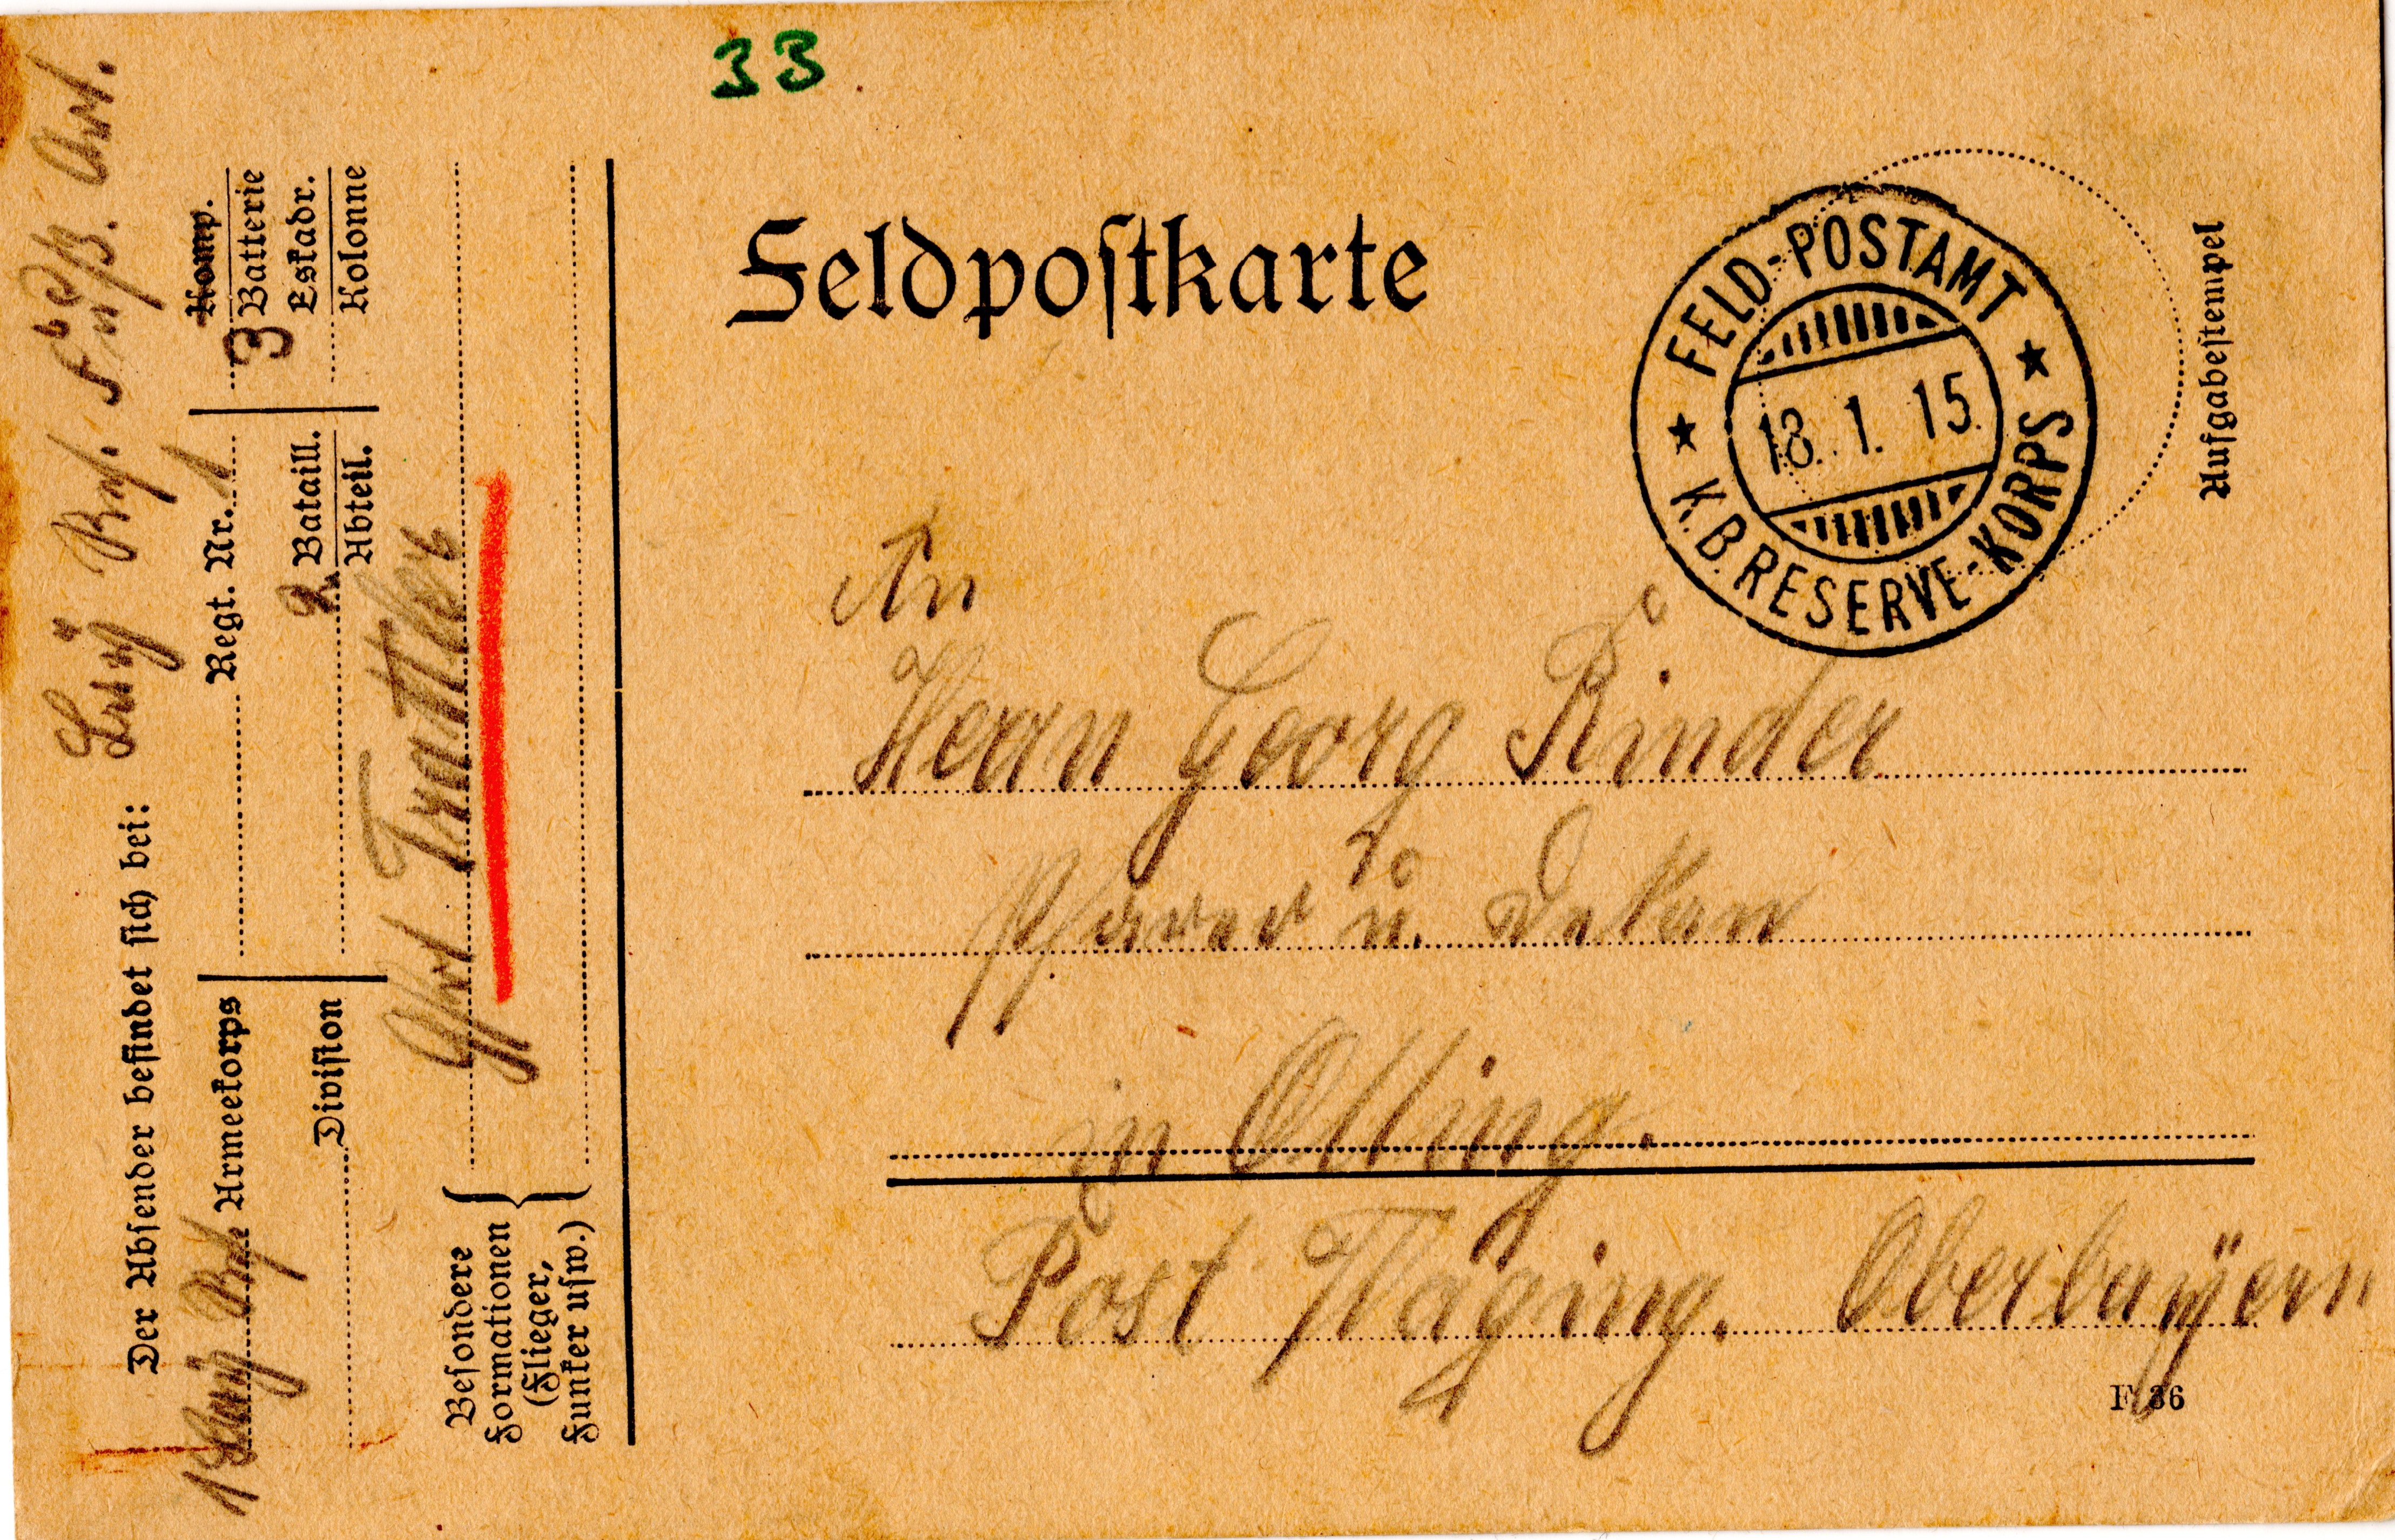 33
Feldpostkarte
FELD-POSTAMT
18. 1. 15.
K.B. RESERVE-KORPS
Aufgabestempel
An
Herrn Georg Rinder
Pfarrer u. Dekan
in Otting.
Post Waging. Oberbayern
F 36
Der Absender befindet sich bei: Bay Res. Fuß. Art.
1 Bay Res. Armeekorps
Regt. Nr. 1
3 Komp.
Batterie
Eskadr.
Kolonne
Division
2. Bataill.
Abteil.
Besondere
Formationen
(Flieger,
Funker usw.)
Gfrt Trattler